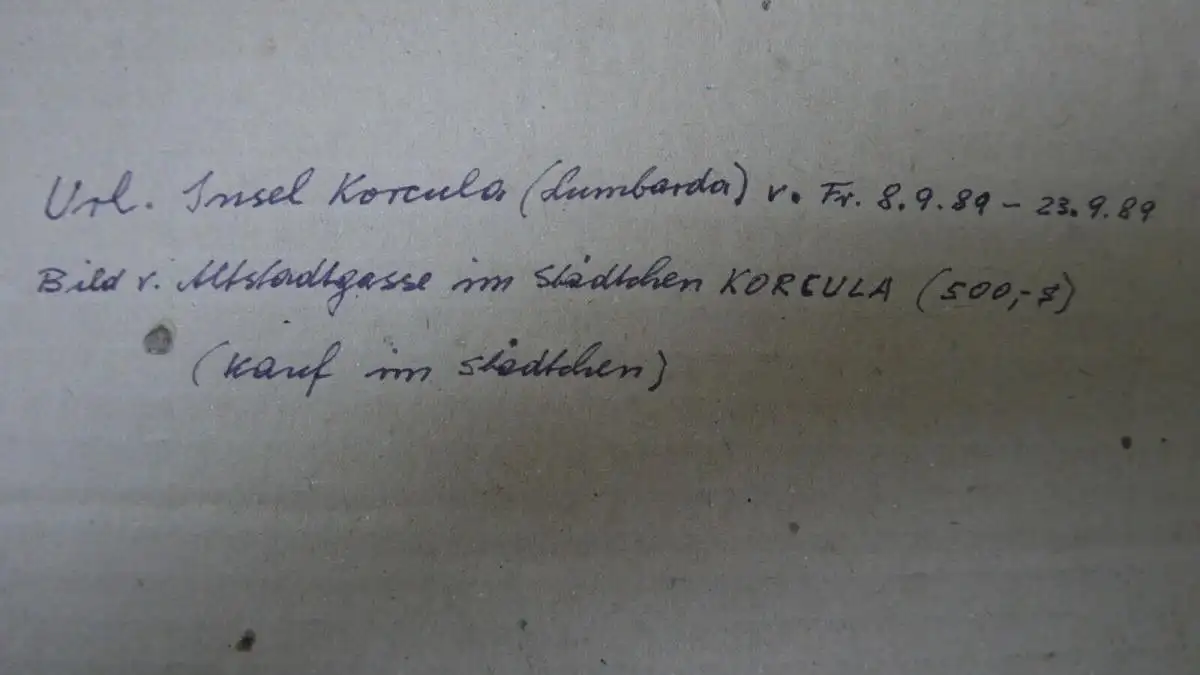 Url. Insel Korcula (Lumbarda) v. Fr. 8.9.89 – 23.9.89
Bild v. Altstadtgasse im Städtchen KORCULA (500,-$)
(Kauf im Städtchen)